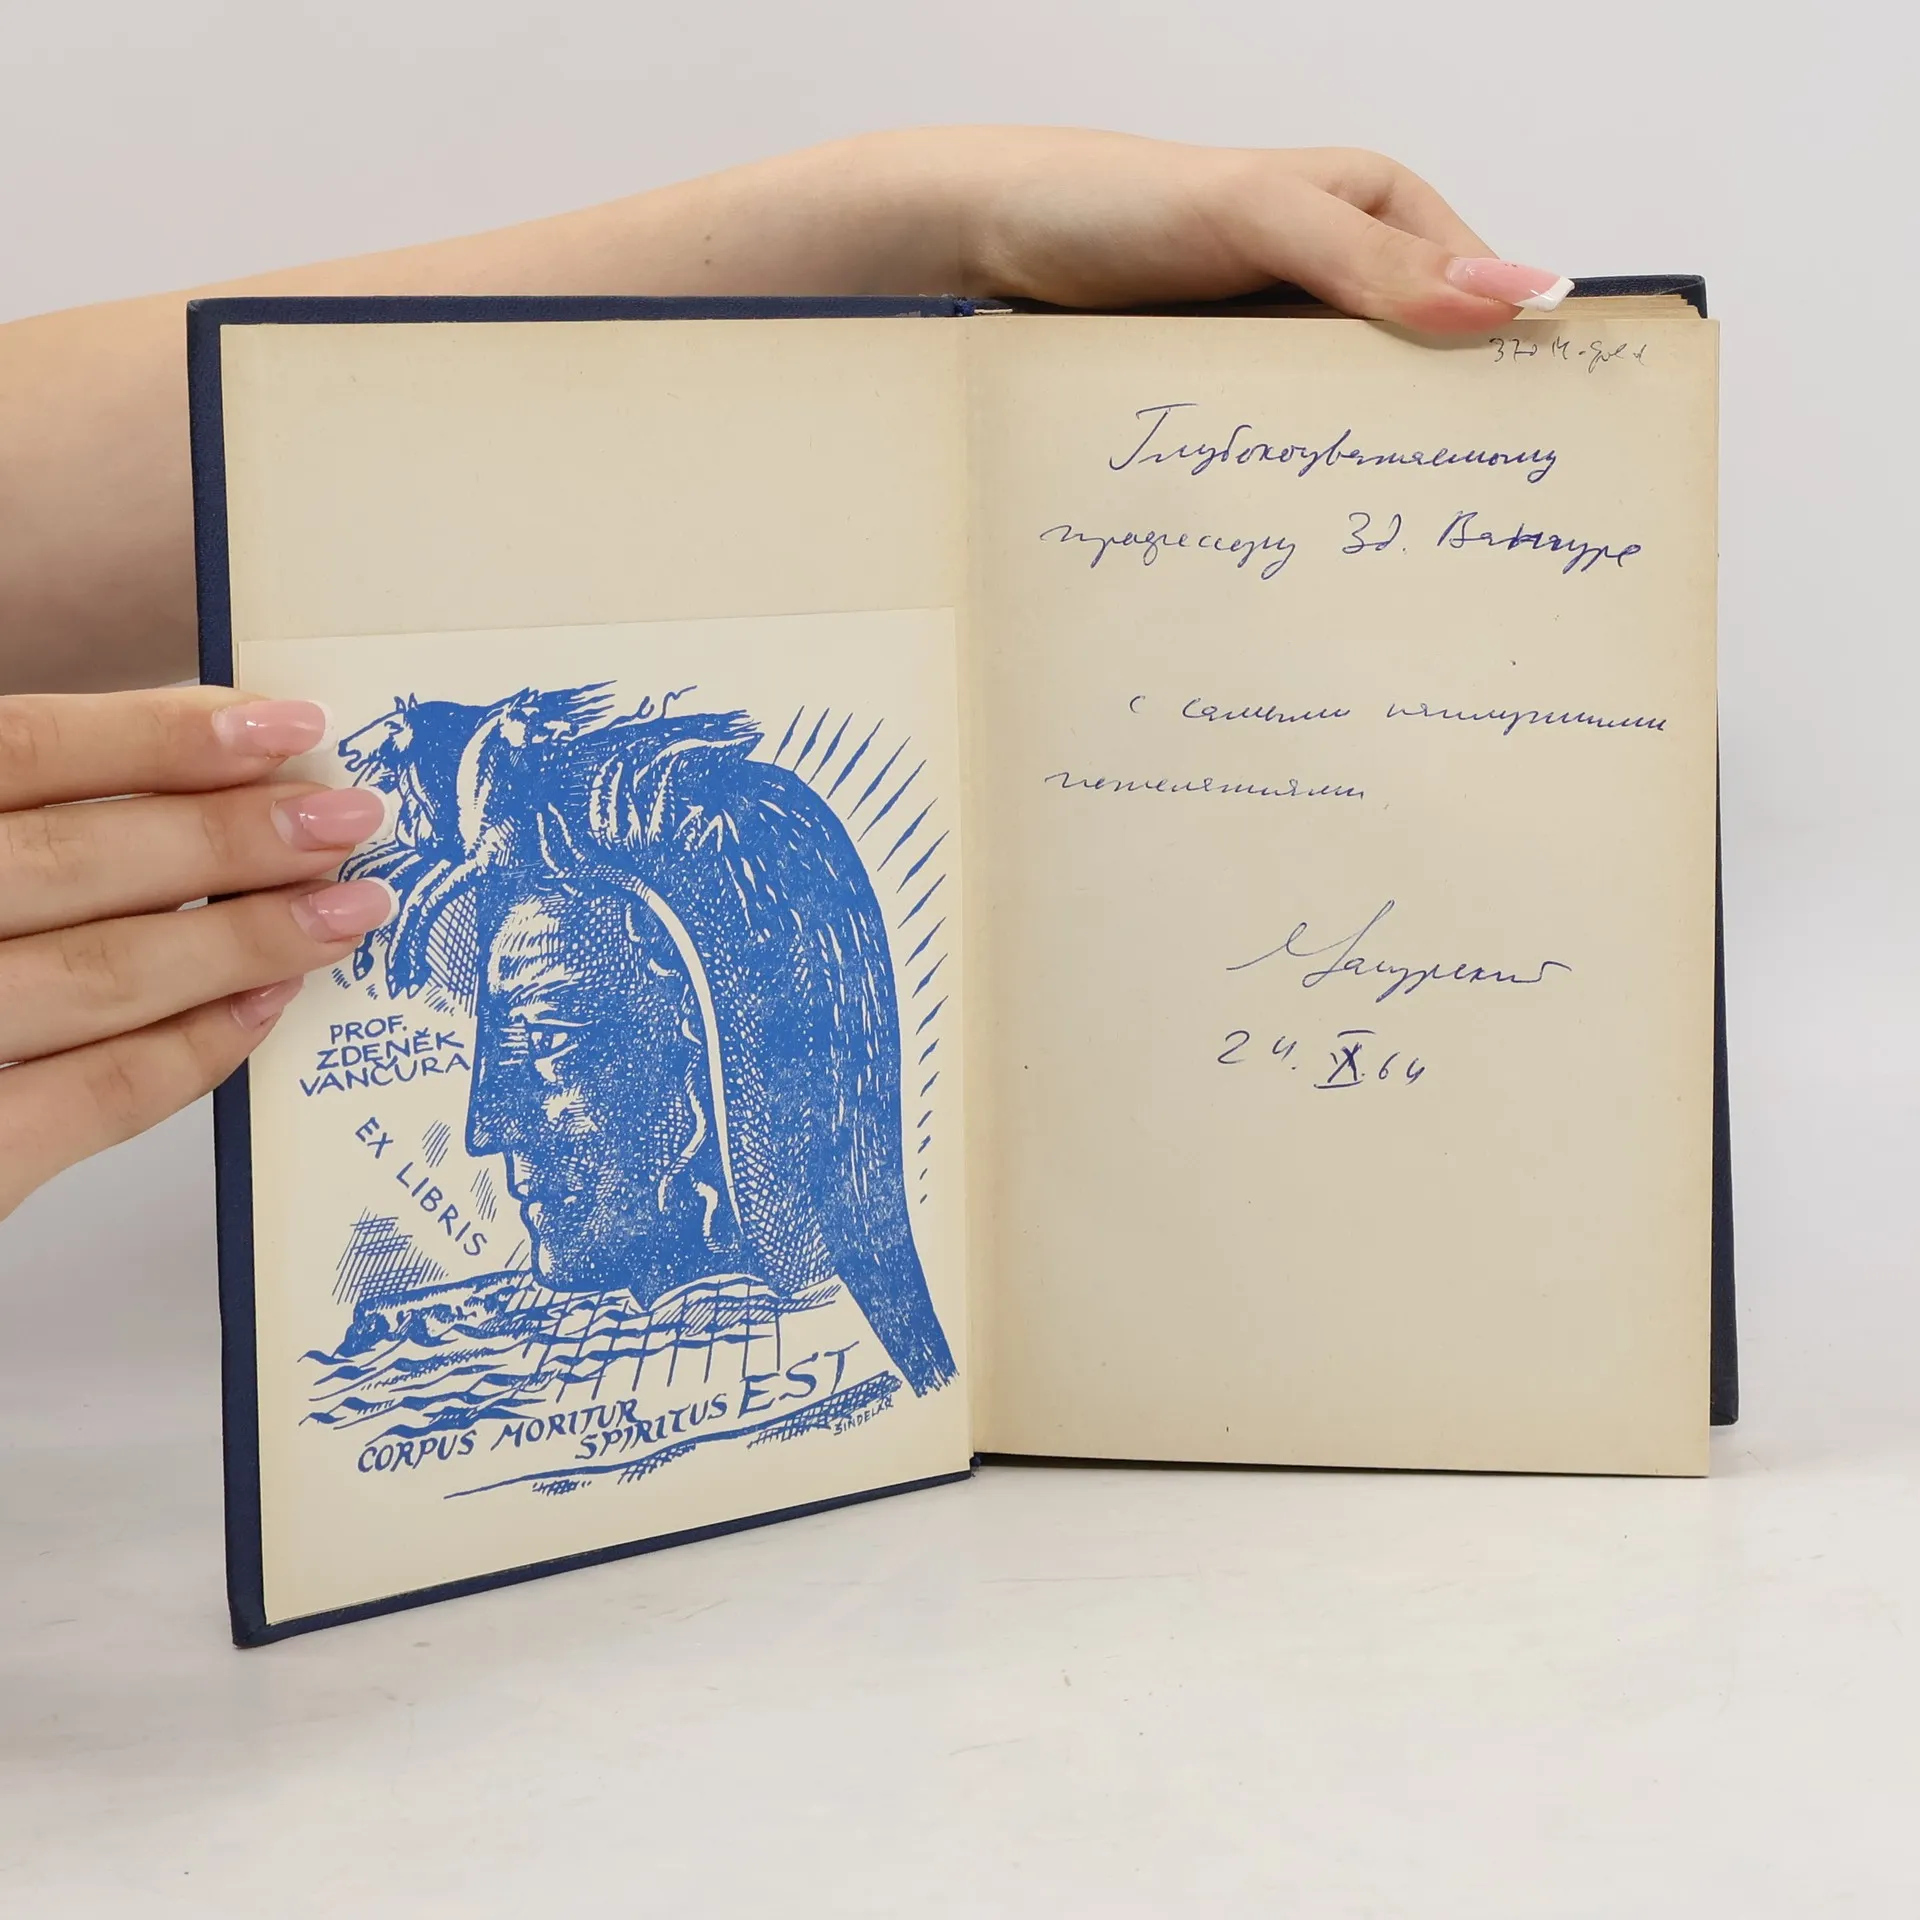 PROF.
ZDENĚK
VANČURA
EX LIBRIS
CORPUS MORITUR
SPIRITUS EST
ŠINDELÁŘ
Глубокоуважаемому
профессору Зд. Ванчуре
с самыми наилучшими
пожеланиями
24. IX. 64